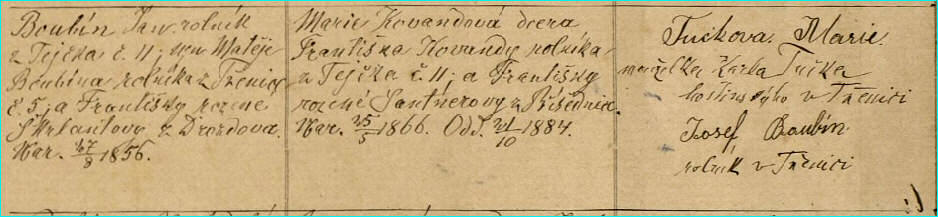 Boubín Jan. rolník
z Tejčka č. 11; syn Matěje
Boubína rolníka z Třenice
č. 5; a Františky rozené
Škrlantovy z Drozdova.
Nar. 27/3 1856.
Marie Kovandová dcera
Františka Kovandy rolníka
z Tejčka č. 11; a Františky
rozené Santnerovy z Příšednice
Nar. 25/5 1866. Odd. 21/10 1884.
Tučkova. Marie
manželka Karla Tučka
hostinského v Třenici
Josef Boubín
rolník v Třenici